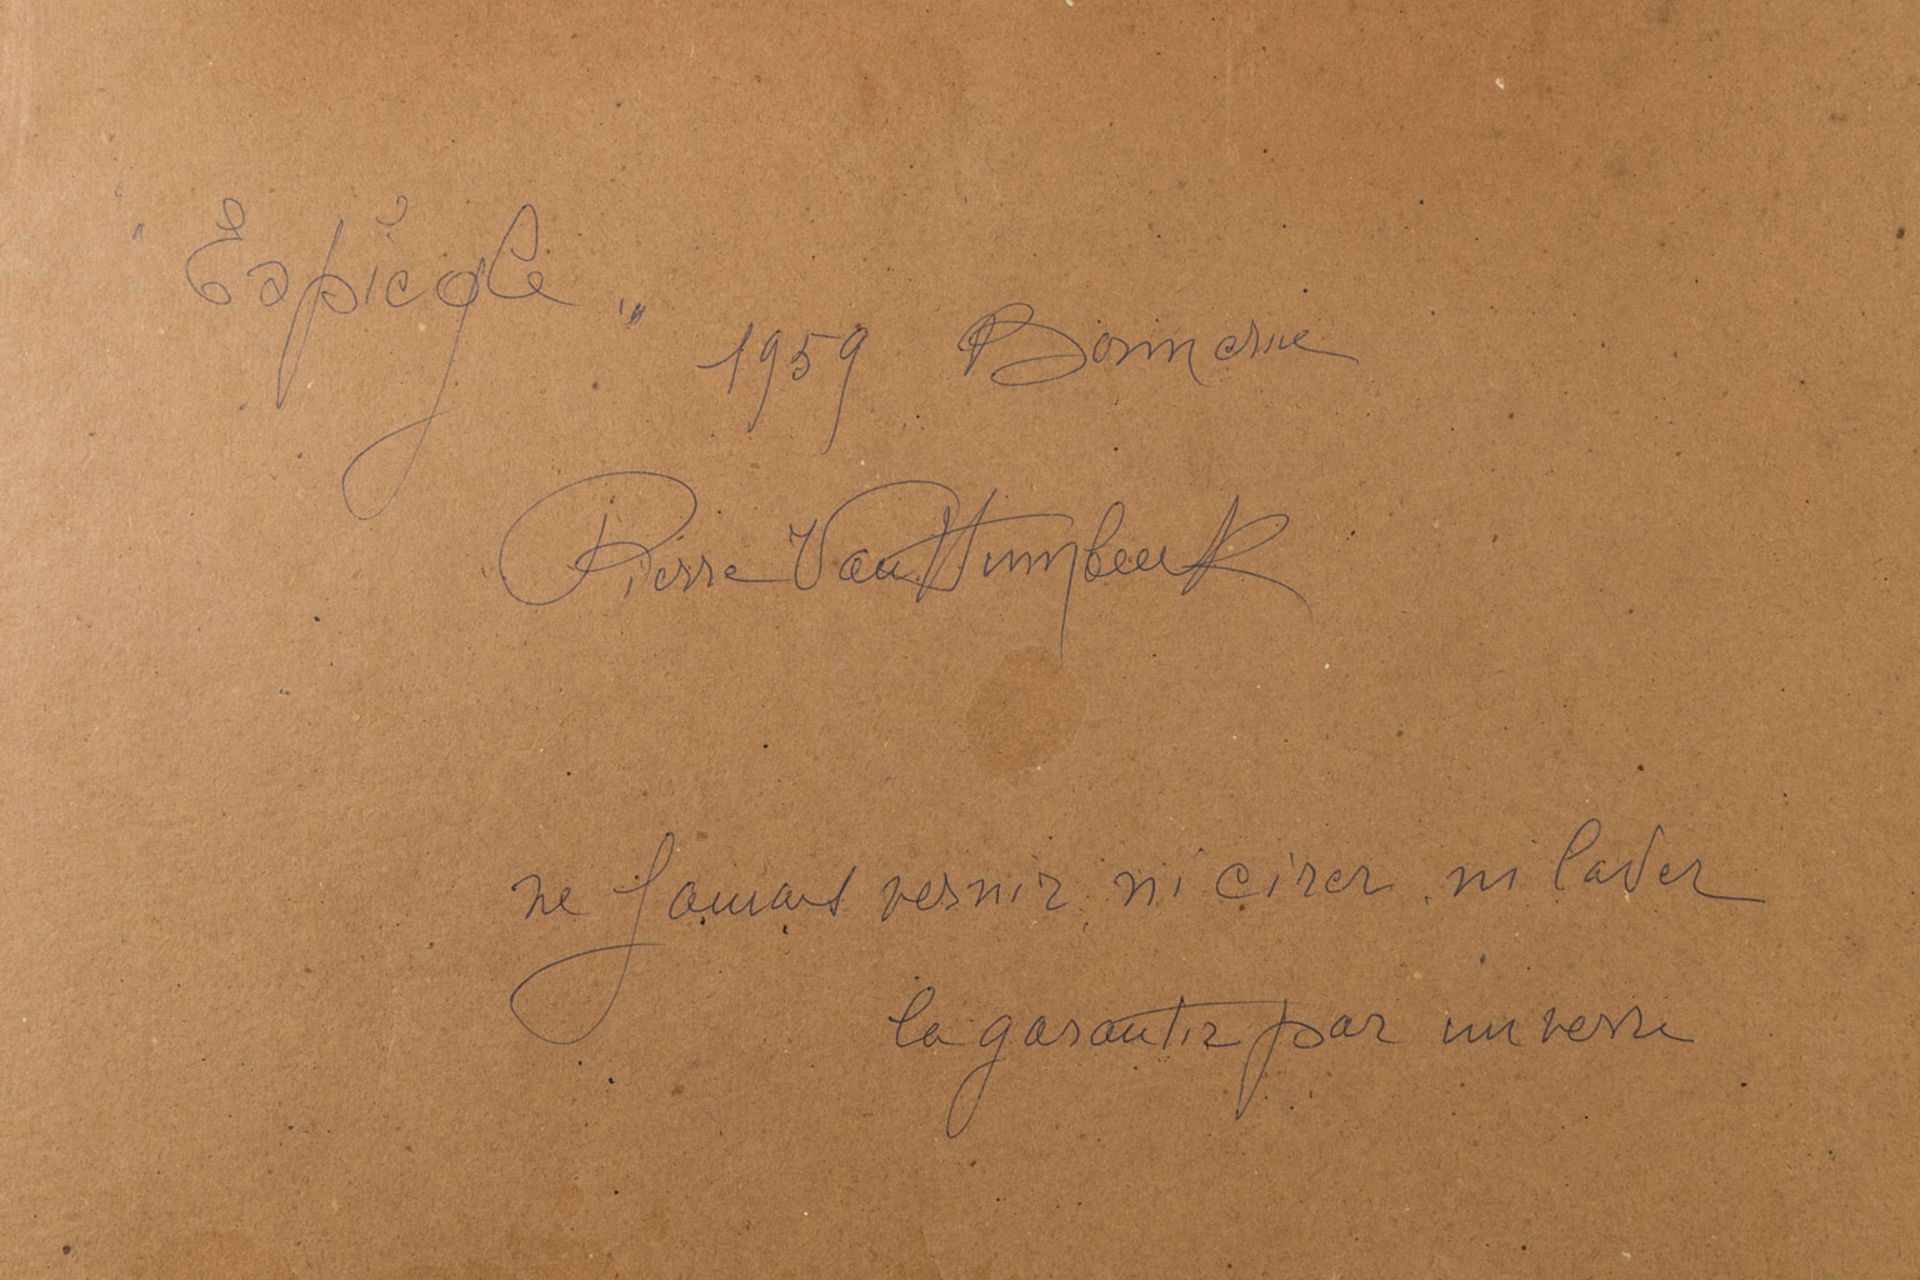 "Espiègle" 1959 Bonnerue
Pierre Van Humbeeck
ne jamais vernir, ni cirer, ni laver
la garantir par un verre